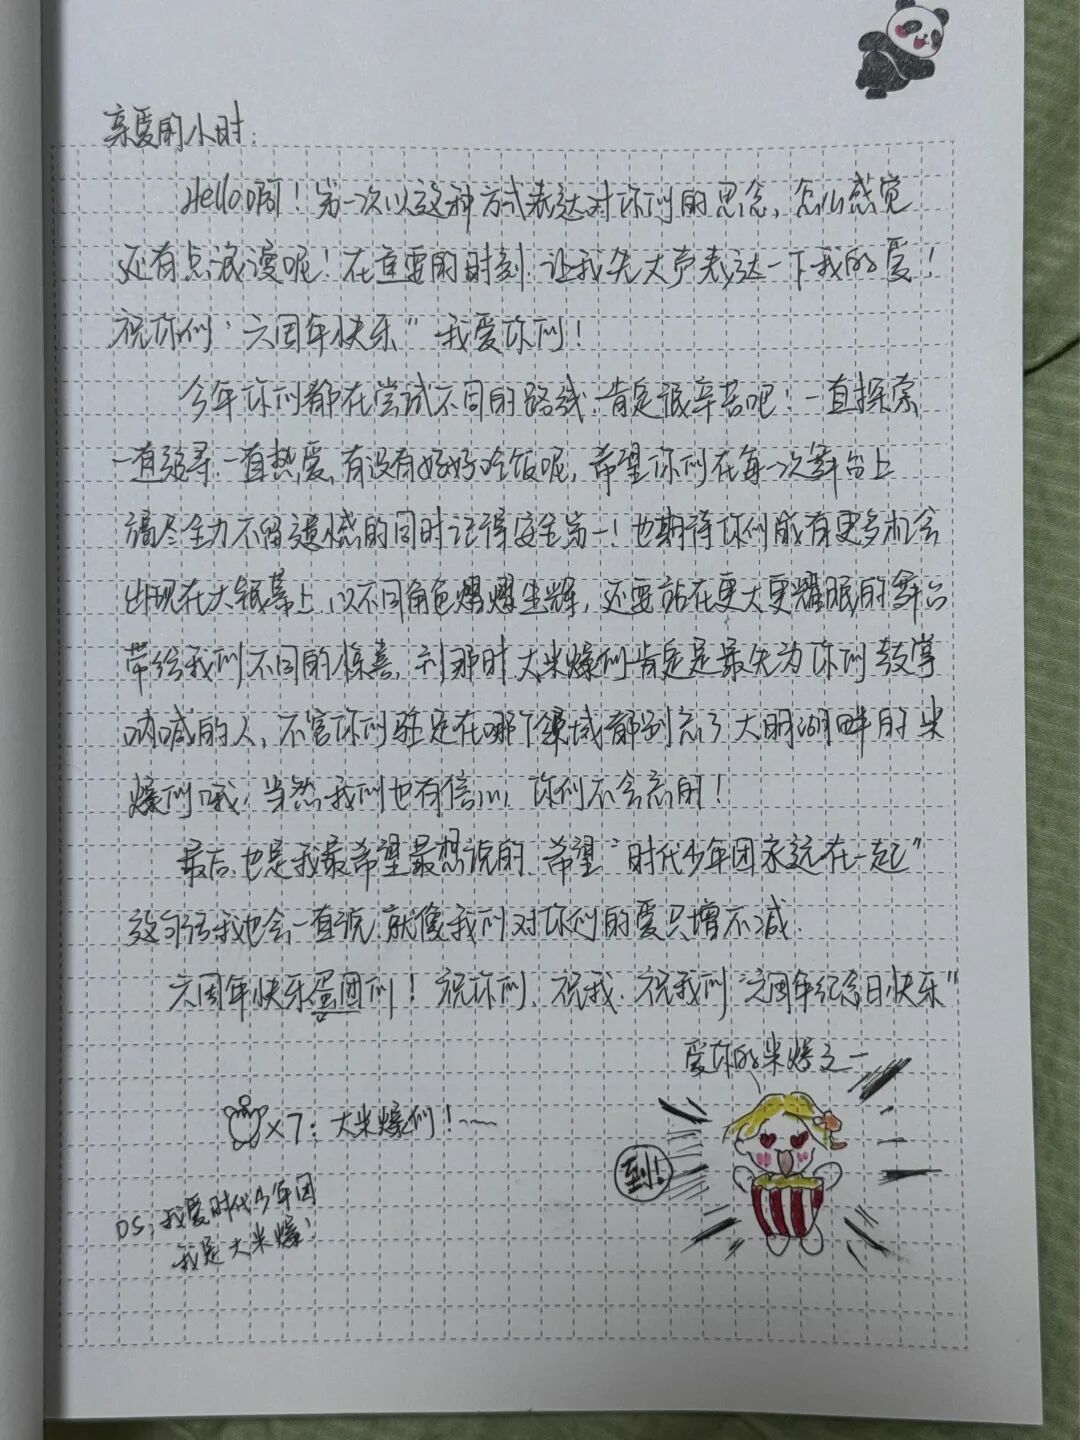 亲爱的小时：
Hello啊！第一次以这种方式表达对你们的思念，怎么感觉
还有点浪漫呢！在重要的时刻，让我先大声表达一下我的爱！
祝你们“六周年快乐”我爱你们！
今年你们都在尝试不同的路线，肯定很辛苦吧！一直探索
一直追寻一直热爱，有没有好好吃饭呢，希望你们在每一次舞台上
竭尽全力不留遗憾的同时记得安全第一！也期待你们能有更多机会
出现在大银幕上，以不同角色熠熠生辉，还要站在更大更耀眼的舞台
带给我们不同的惊喜，到那时大米爆们肯定是最先为你们鼓掌
呐喊的人，不管你们驻足在哪个领域都别忘了大明湖畔的米
爆们哦，当然我们也有信心，你们不会忘的！
最后，也是我最希望最想说的，希望“时代少年团永远在一起”
这句话我也会一直说，就像我们对你们的爱只增不减.
六周年快乐蛋团们！祝你们，祝我，祝我们“六周年纪念日快乐”
爱你的米爆之一
x7：大米爆们！~~
到！
PS：我爱时代少年团
我是大米爆！